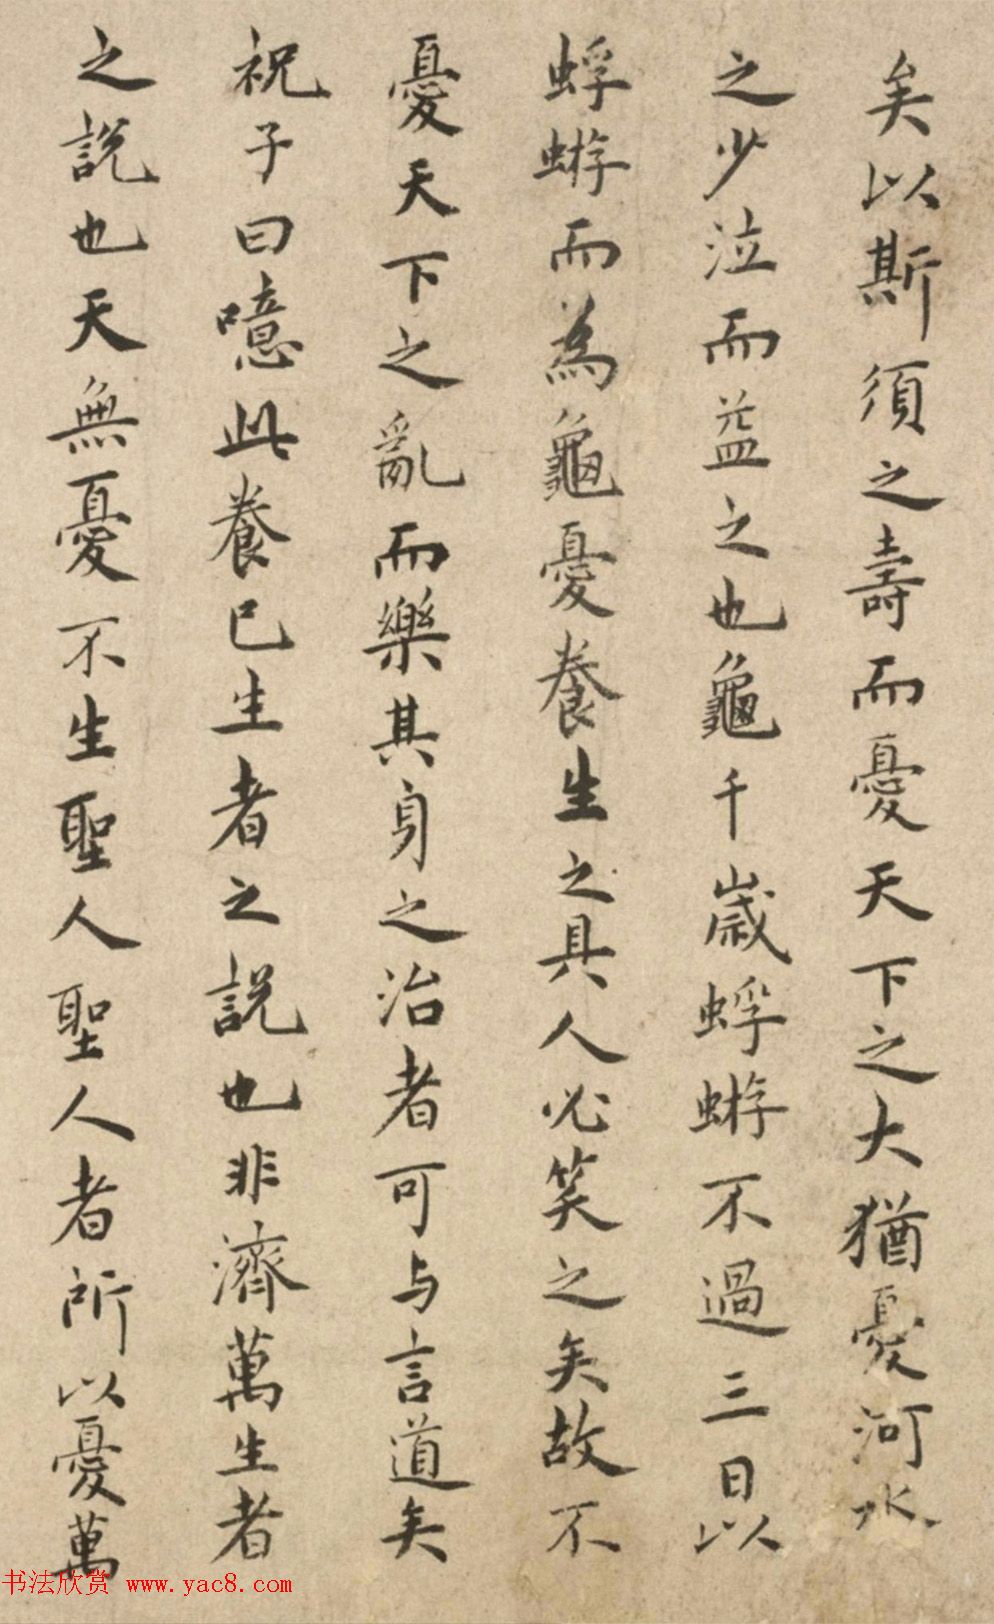 矣以斯須之壽而憂天下之大猶憂河水
之少泣而益之也龜千歲蜉蝣不過三日以
蜉蝣而為龜憂養生之具人必笑之矣故不
憂天下之亂而樂其身之治者可与言道矣
祝子曰噫此養已生者之說也非濟萬生者
之說也天無憂不生聖人聖人者所以憂萬
书法欣赏 www.yac8.com